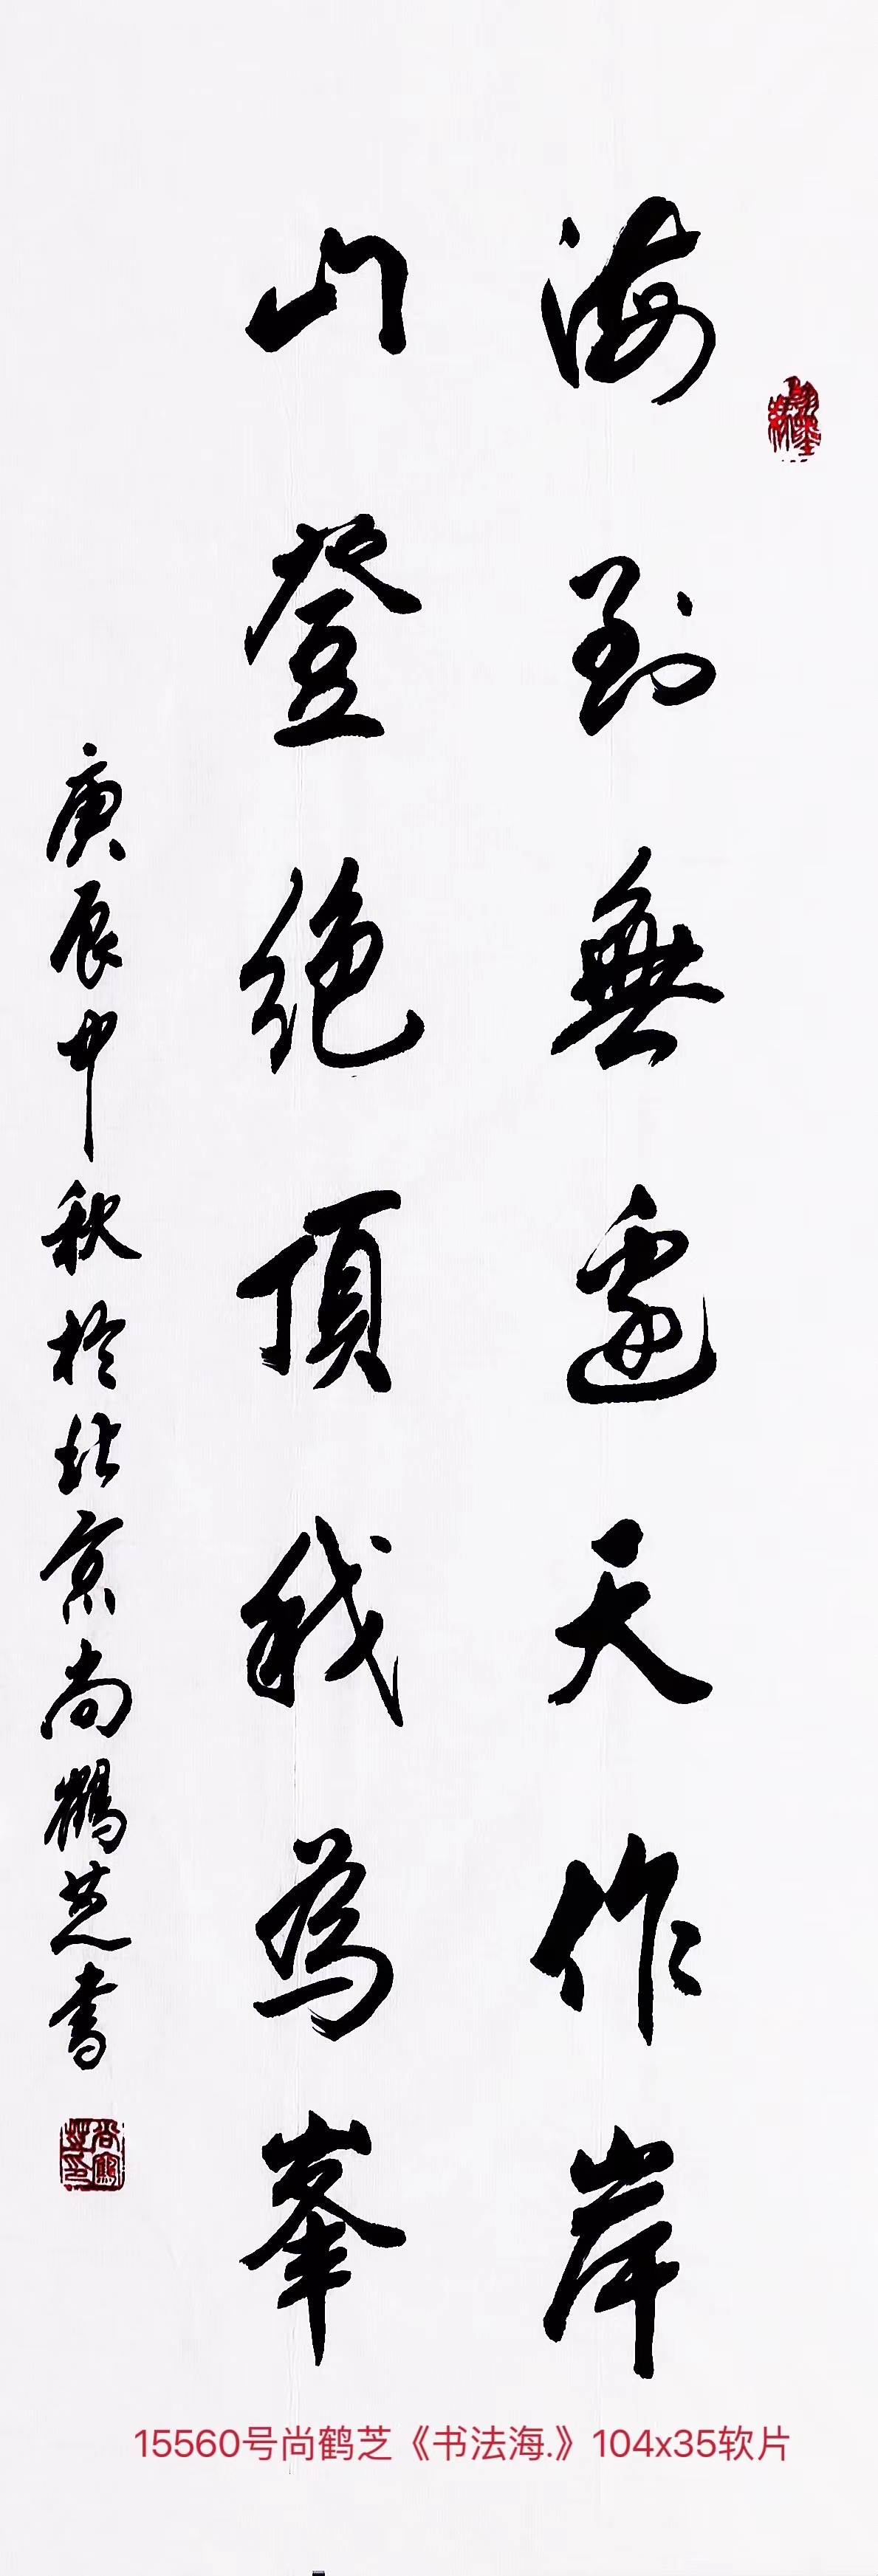 海到無邊天作岸
山登絕頂我為峯
庚辰中秋於北京尚鶴芝書
15560号尚鹤芝《书法海.》104x35软片